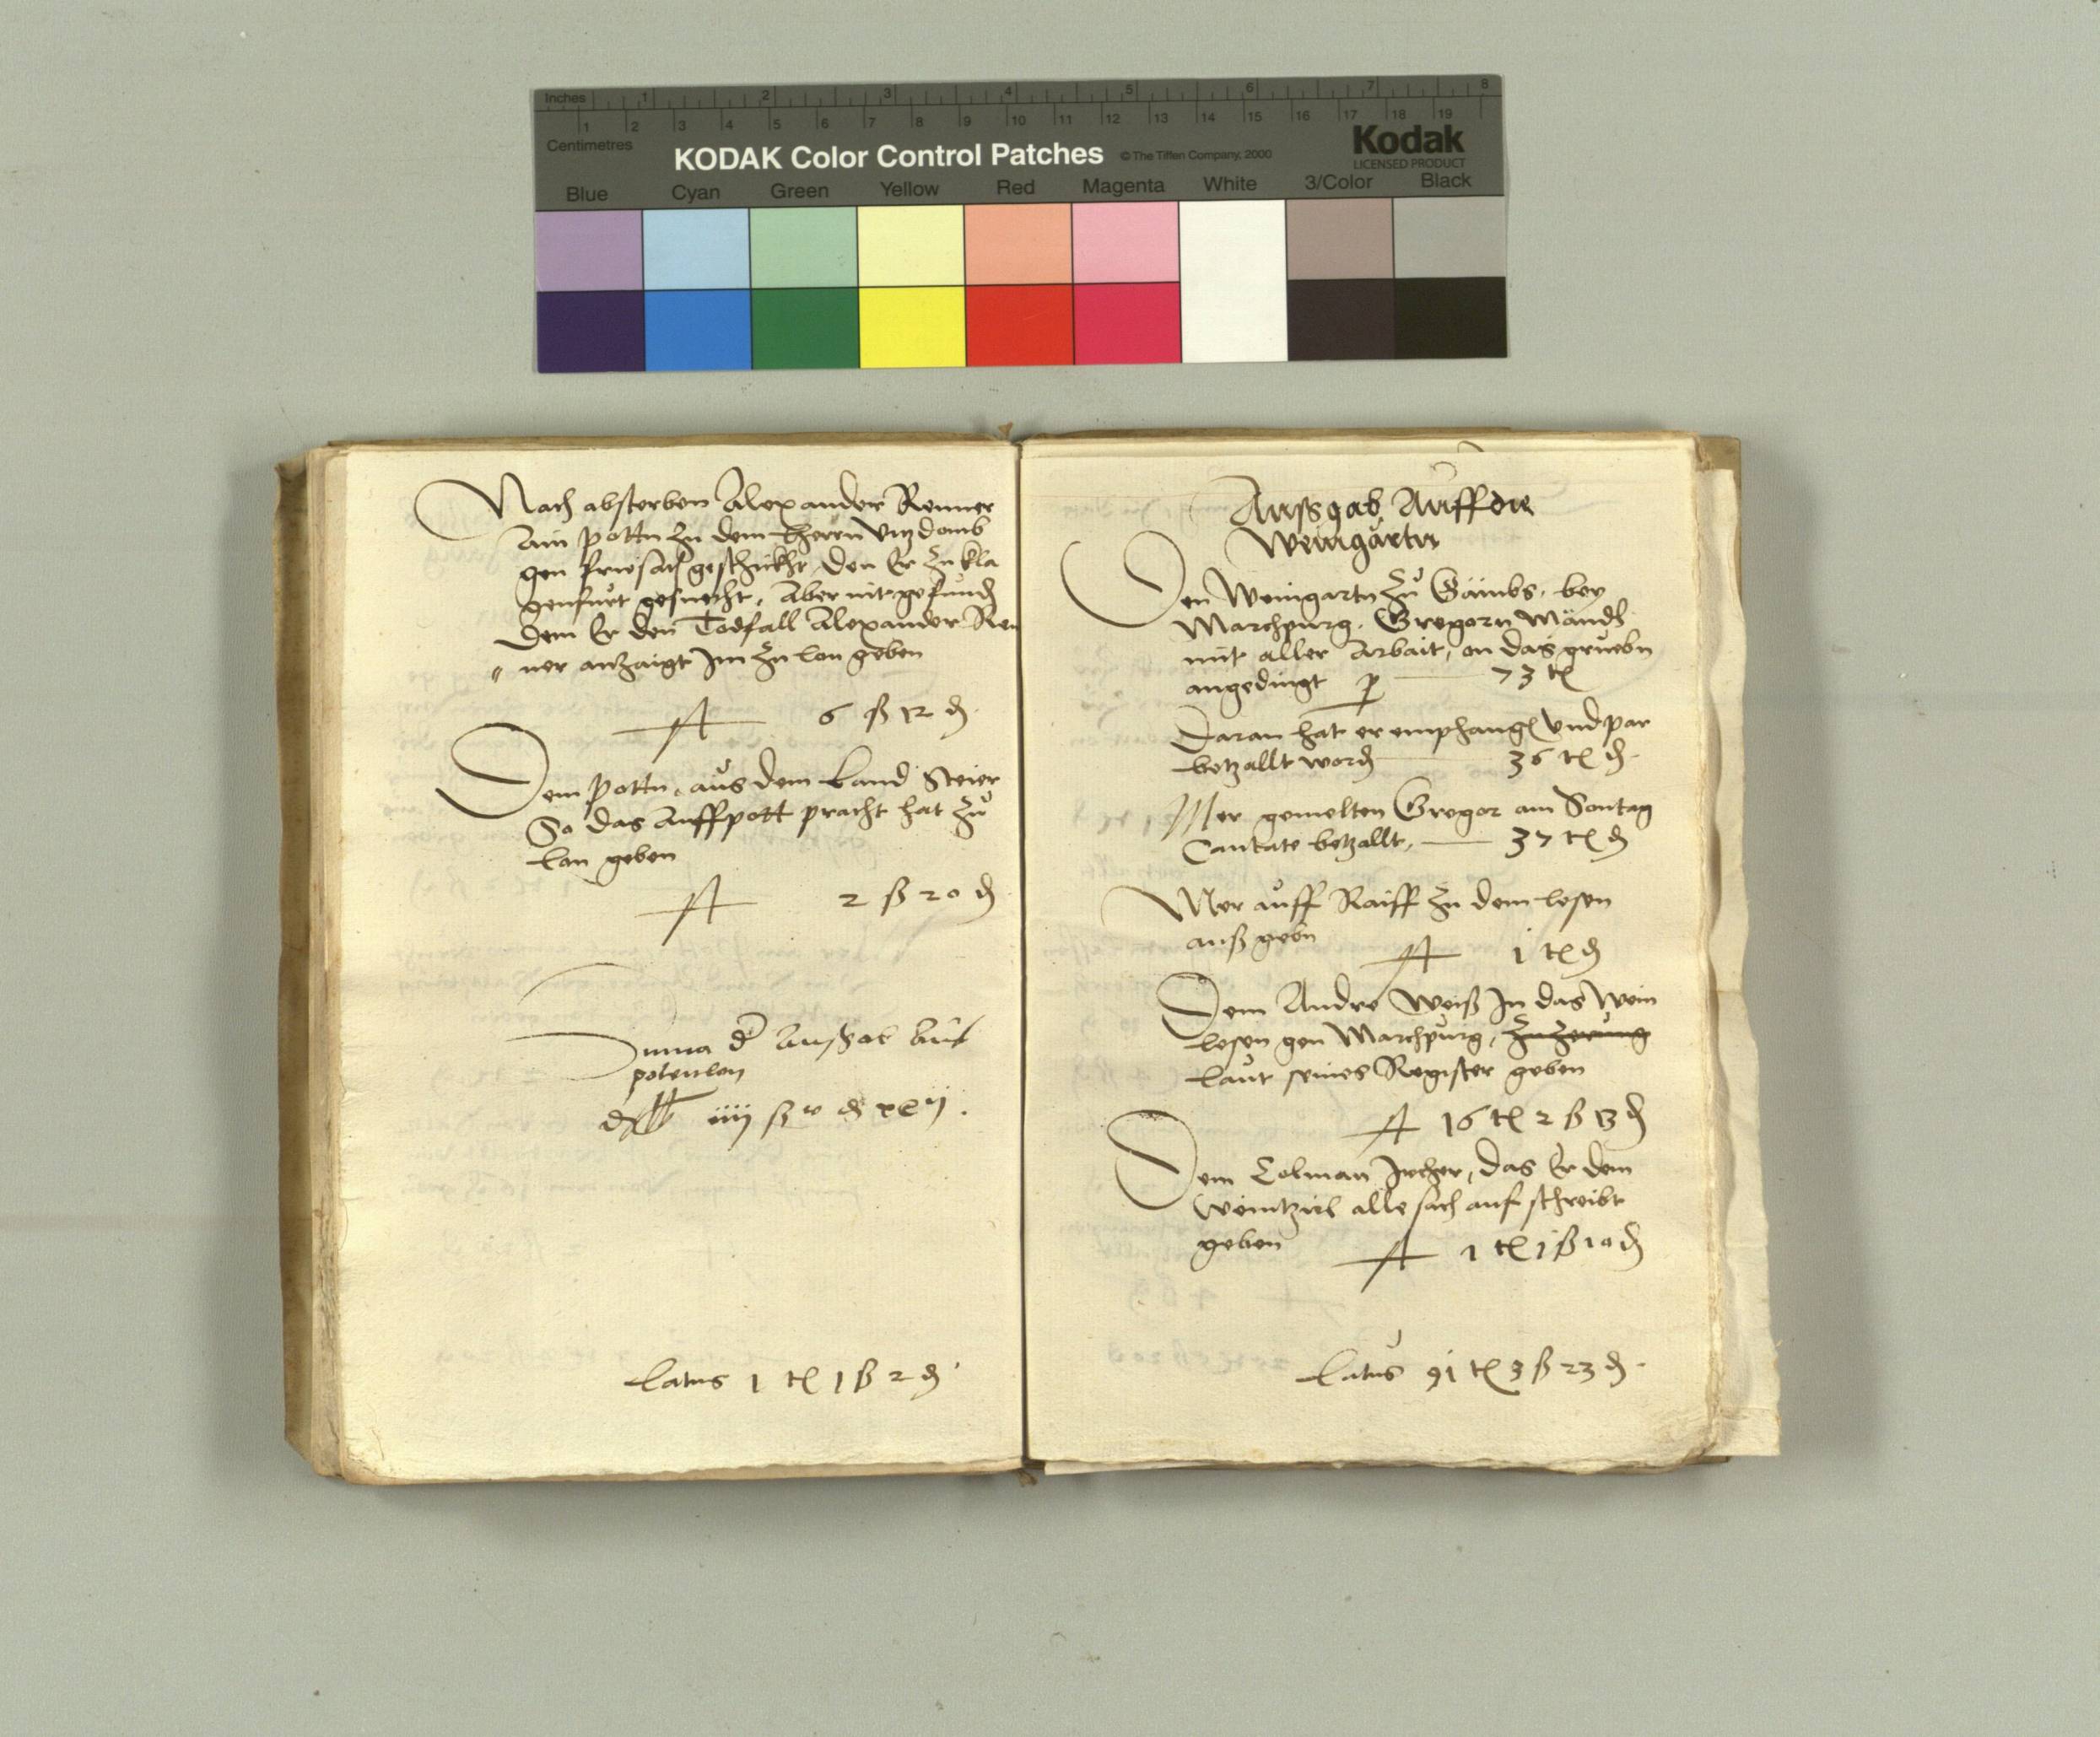 Inches 1 2 3 4 5 6 7 8
Centimetres 1 2 3 4 5 6 7 8 9 10 11 12 13 14 15 16 17 18 19
KODAK Color Control Patches © The Tiffen Company, 2000 Kodak
LICENSED PRODUCT
Blue Cyan Green Yellow Red Magenta White 3/Color Black
Nach absterben Alexander Renner
Ain pottn zu dem herrn vitzdomb
gen friesach geschickht, den Er zu kla
genfurt gesuecht, Aber nit gefund
dem Er den Todfall Alexander Ren
ner anzaigt Im zu lon geben
6 ß 12 ₰
Dem pottn, aus dem Land Steier
So das Auffpott pracht hat zu
lon geben
2 ß 20 ₰
Suma d Aussgab Auf
potenlon
iiij ß ₰
Latus 1 ℔ 1 ß 2 ₰
Aussgab Auff die
Weingartn
Den Weingartn zu Gämbs, bey
Marchpurg, Gregorn Mändl
mit aller Arbait, on das gruebn
angedingt p 73 ℔
Daran hat er emphang und par
betzallt word 36 ℔ ₰
Mer gemelten Gregor am Sontag
Cantate betzallt, 37 ℔ ₰
Mer auff Raiff zu dem lesen
auß gebn 1 ℔ ₰
Dem Andre Weiß In das Wein
lesen gen Marchpurg, zu zerung
laut seines Register geben
16 ℔ 2 ß 13 ₰
Dem Colman Ircher, das Er dem
Weintzirl alle sach auf schreibt
geben 1 ℔ 1 ß 10 ₰
Latus 91 ℔ 3 ß 23 ₰